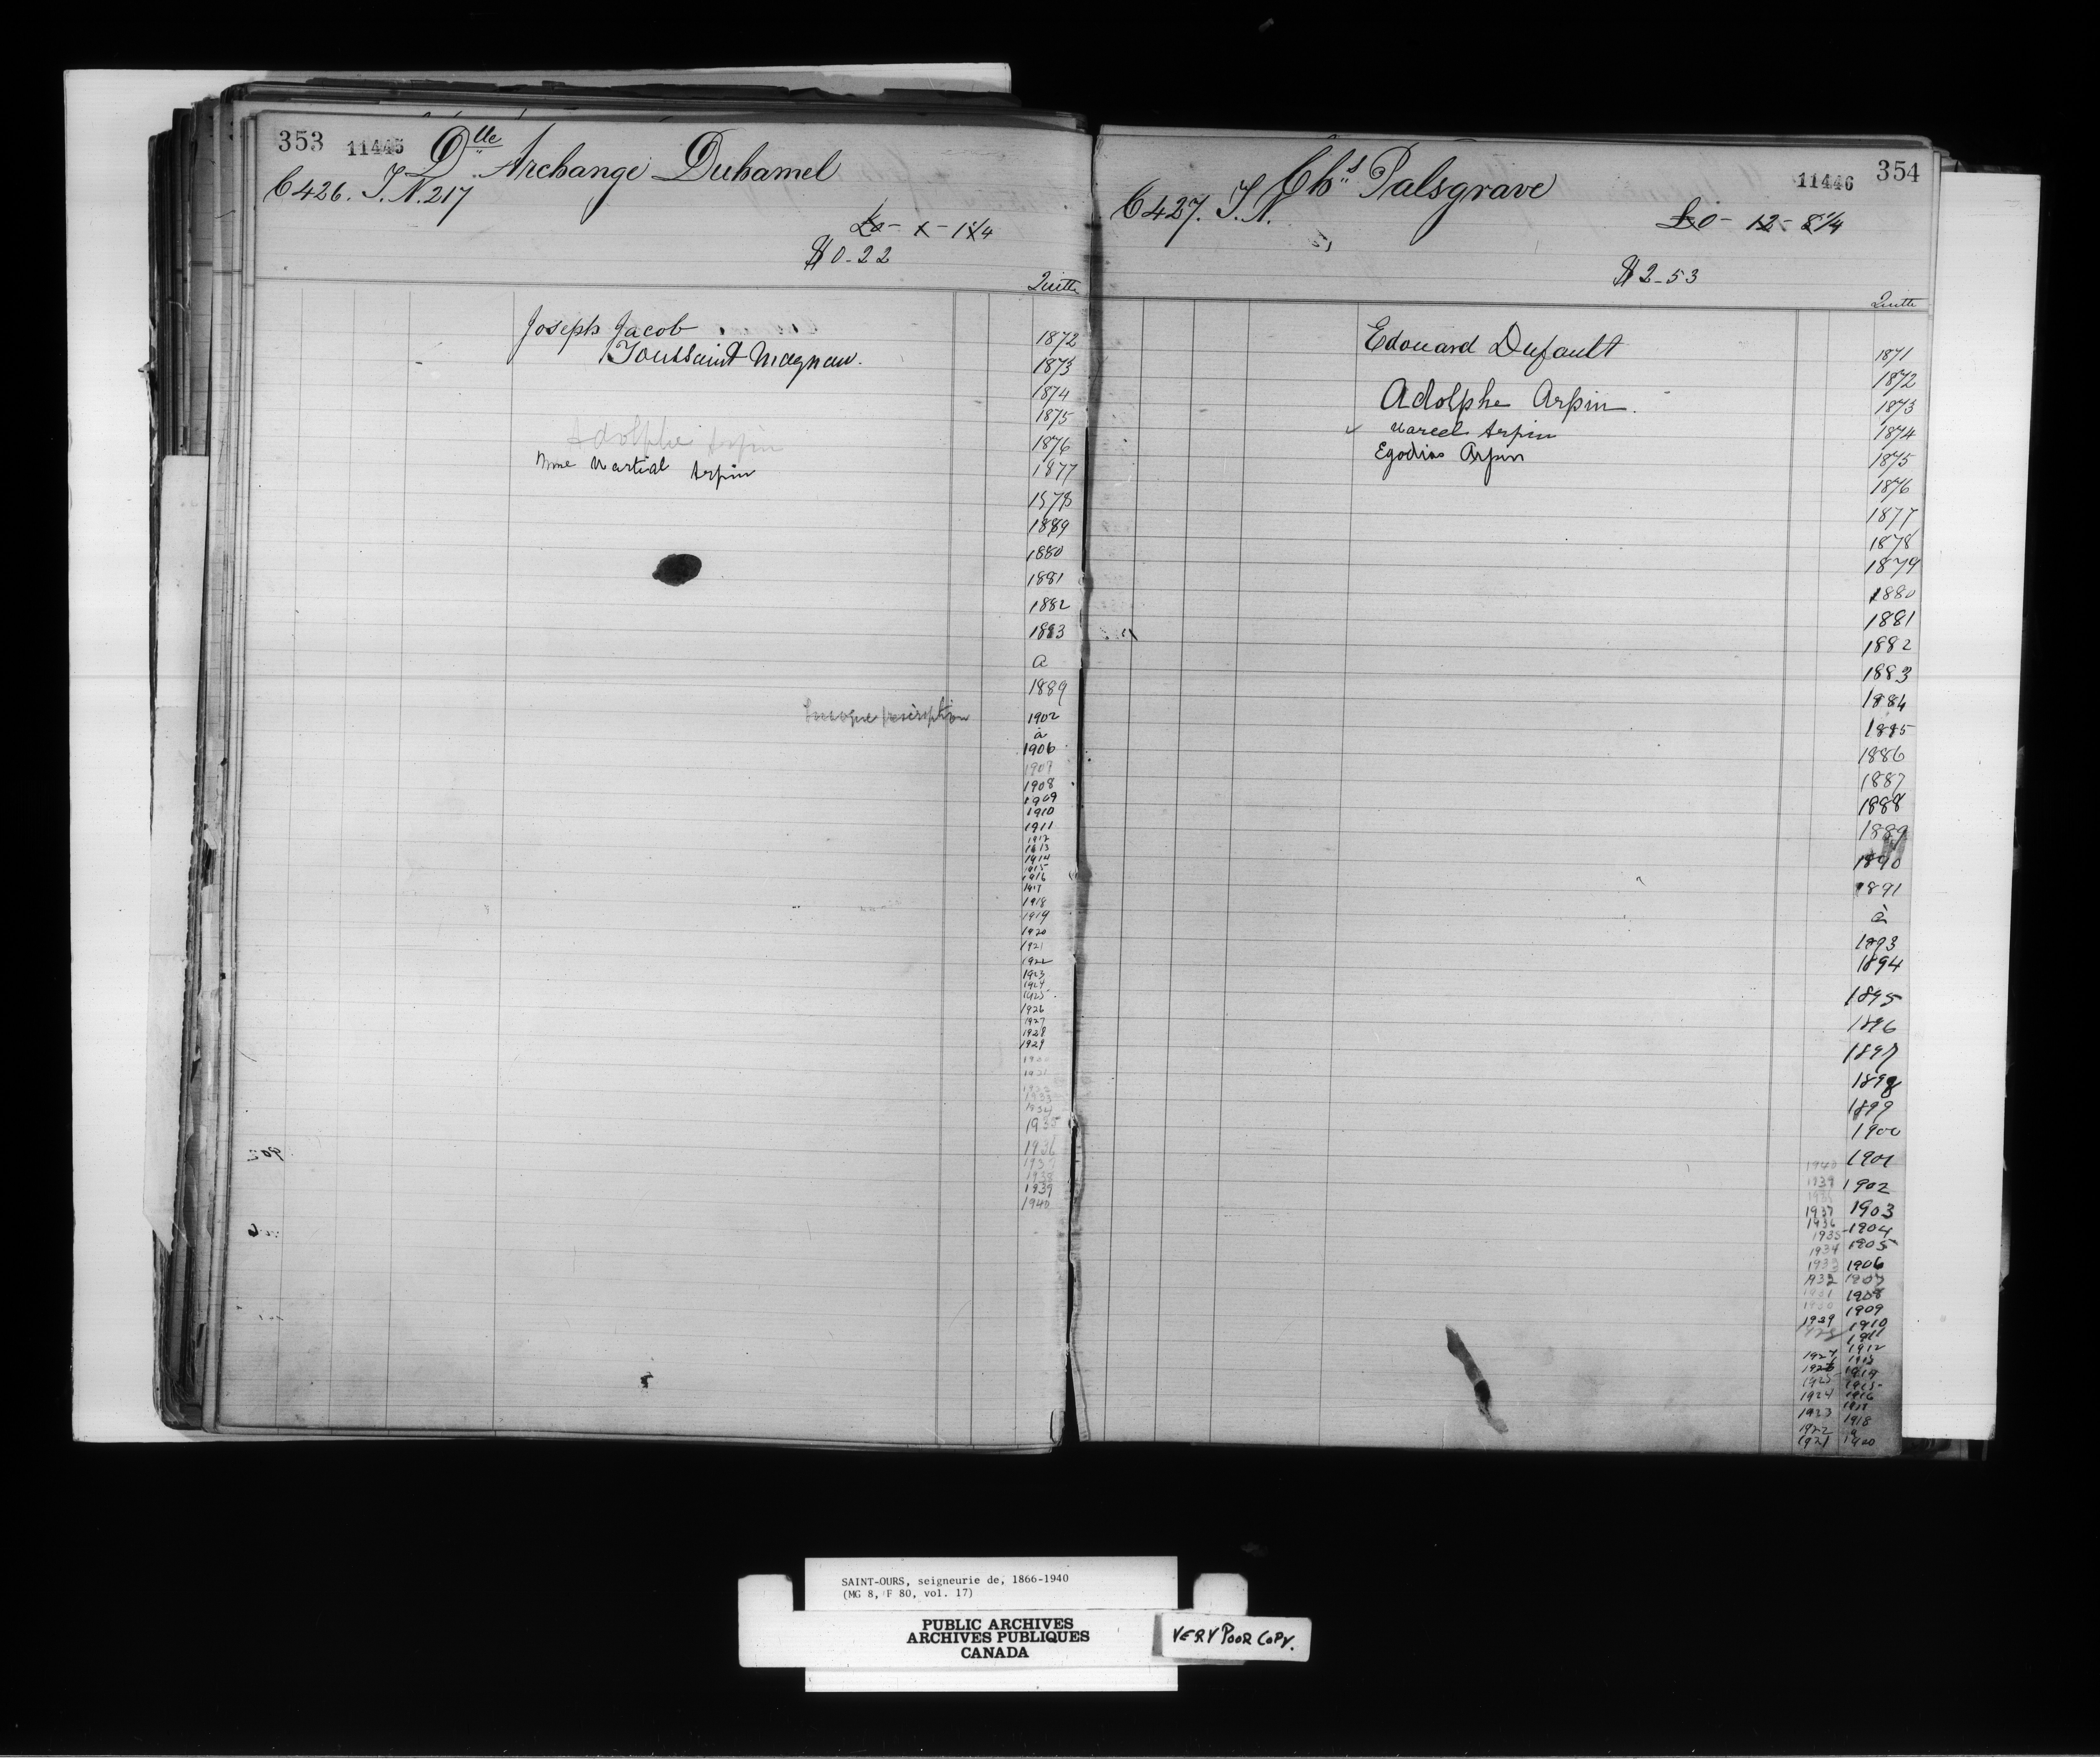 353 11445 Dlle Archange Duhamel
C 426. T. N. 217
£0 - 1 - 1 1/4
$ 0-22
Quitte
Joseph Jacob
Toussaint Magnan.
Adolphe Arpin
Mme Martial Arpin
1872
1873
1874
1875
1876
1877
1878
1889
1880
1881
1882
1883
a
1889
prescription
1902
à
1906
1907
1908
1909
1910
1911
1912
1913
1914
1915
1916
1917
1918
1919
1920
1921
1922
1923
1924
1925
1926
1927
1928
1929
1930
1931
1932
1933
1934
1935
1936
1937
1938
1939
1940
Chs Palsgrave 11446 354
C 427. T. N.
£0 - 12 - 8 1/4
$ 2-53
Quitte
Edouard Dufault
Adolphe Arpin.
Marcel Arpin
Egodias Arpin
1871
1872
1873
1874
1875
1876
1877
1878
1879
1880
1881
1882
1883
1884
1885
1886
1887
1888
1889
1890
1891
à
1893
1894
1895
1896
1897
1898
1899
1900
1940 1901
1939 1902
1938
1937 1903
1936 1904
1935 1905
1934
1933 1906
1932 1907
1931 1908
1930 1909
1939 1910
1928 1911
1912
1927 1913
1926 1914
1925 1915
1924 1916
1917
1923 1918
1922 a
1921 1920
SAINT-OURS, seigneurie de, 1866-1940
(MG 8, F 80, vol. 17)
PUBLIC ARCHIVES
ARCHIVES PUBLIQUES
CANADA
VERY POOR COPY.